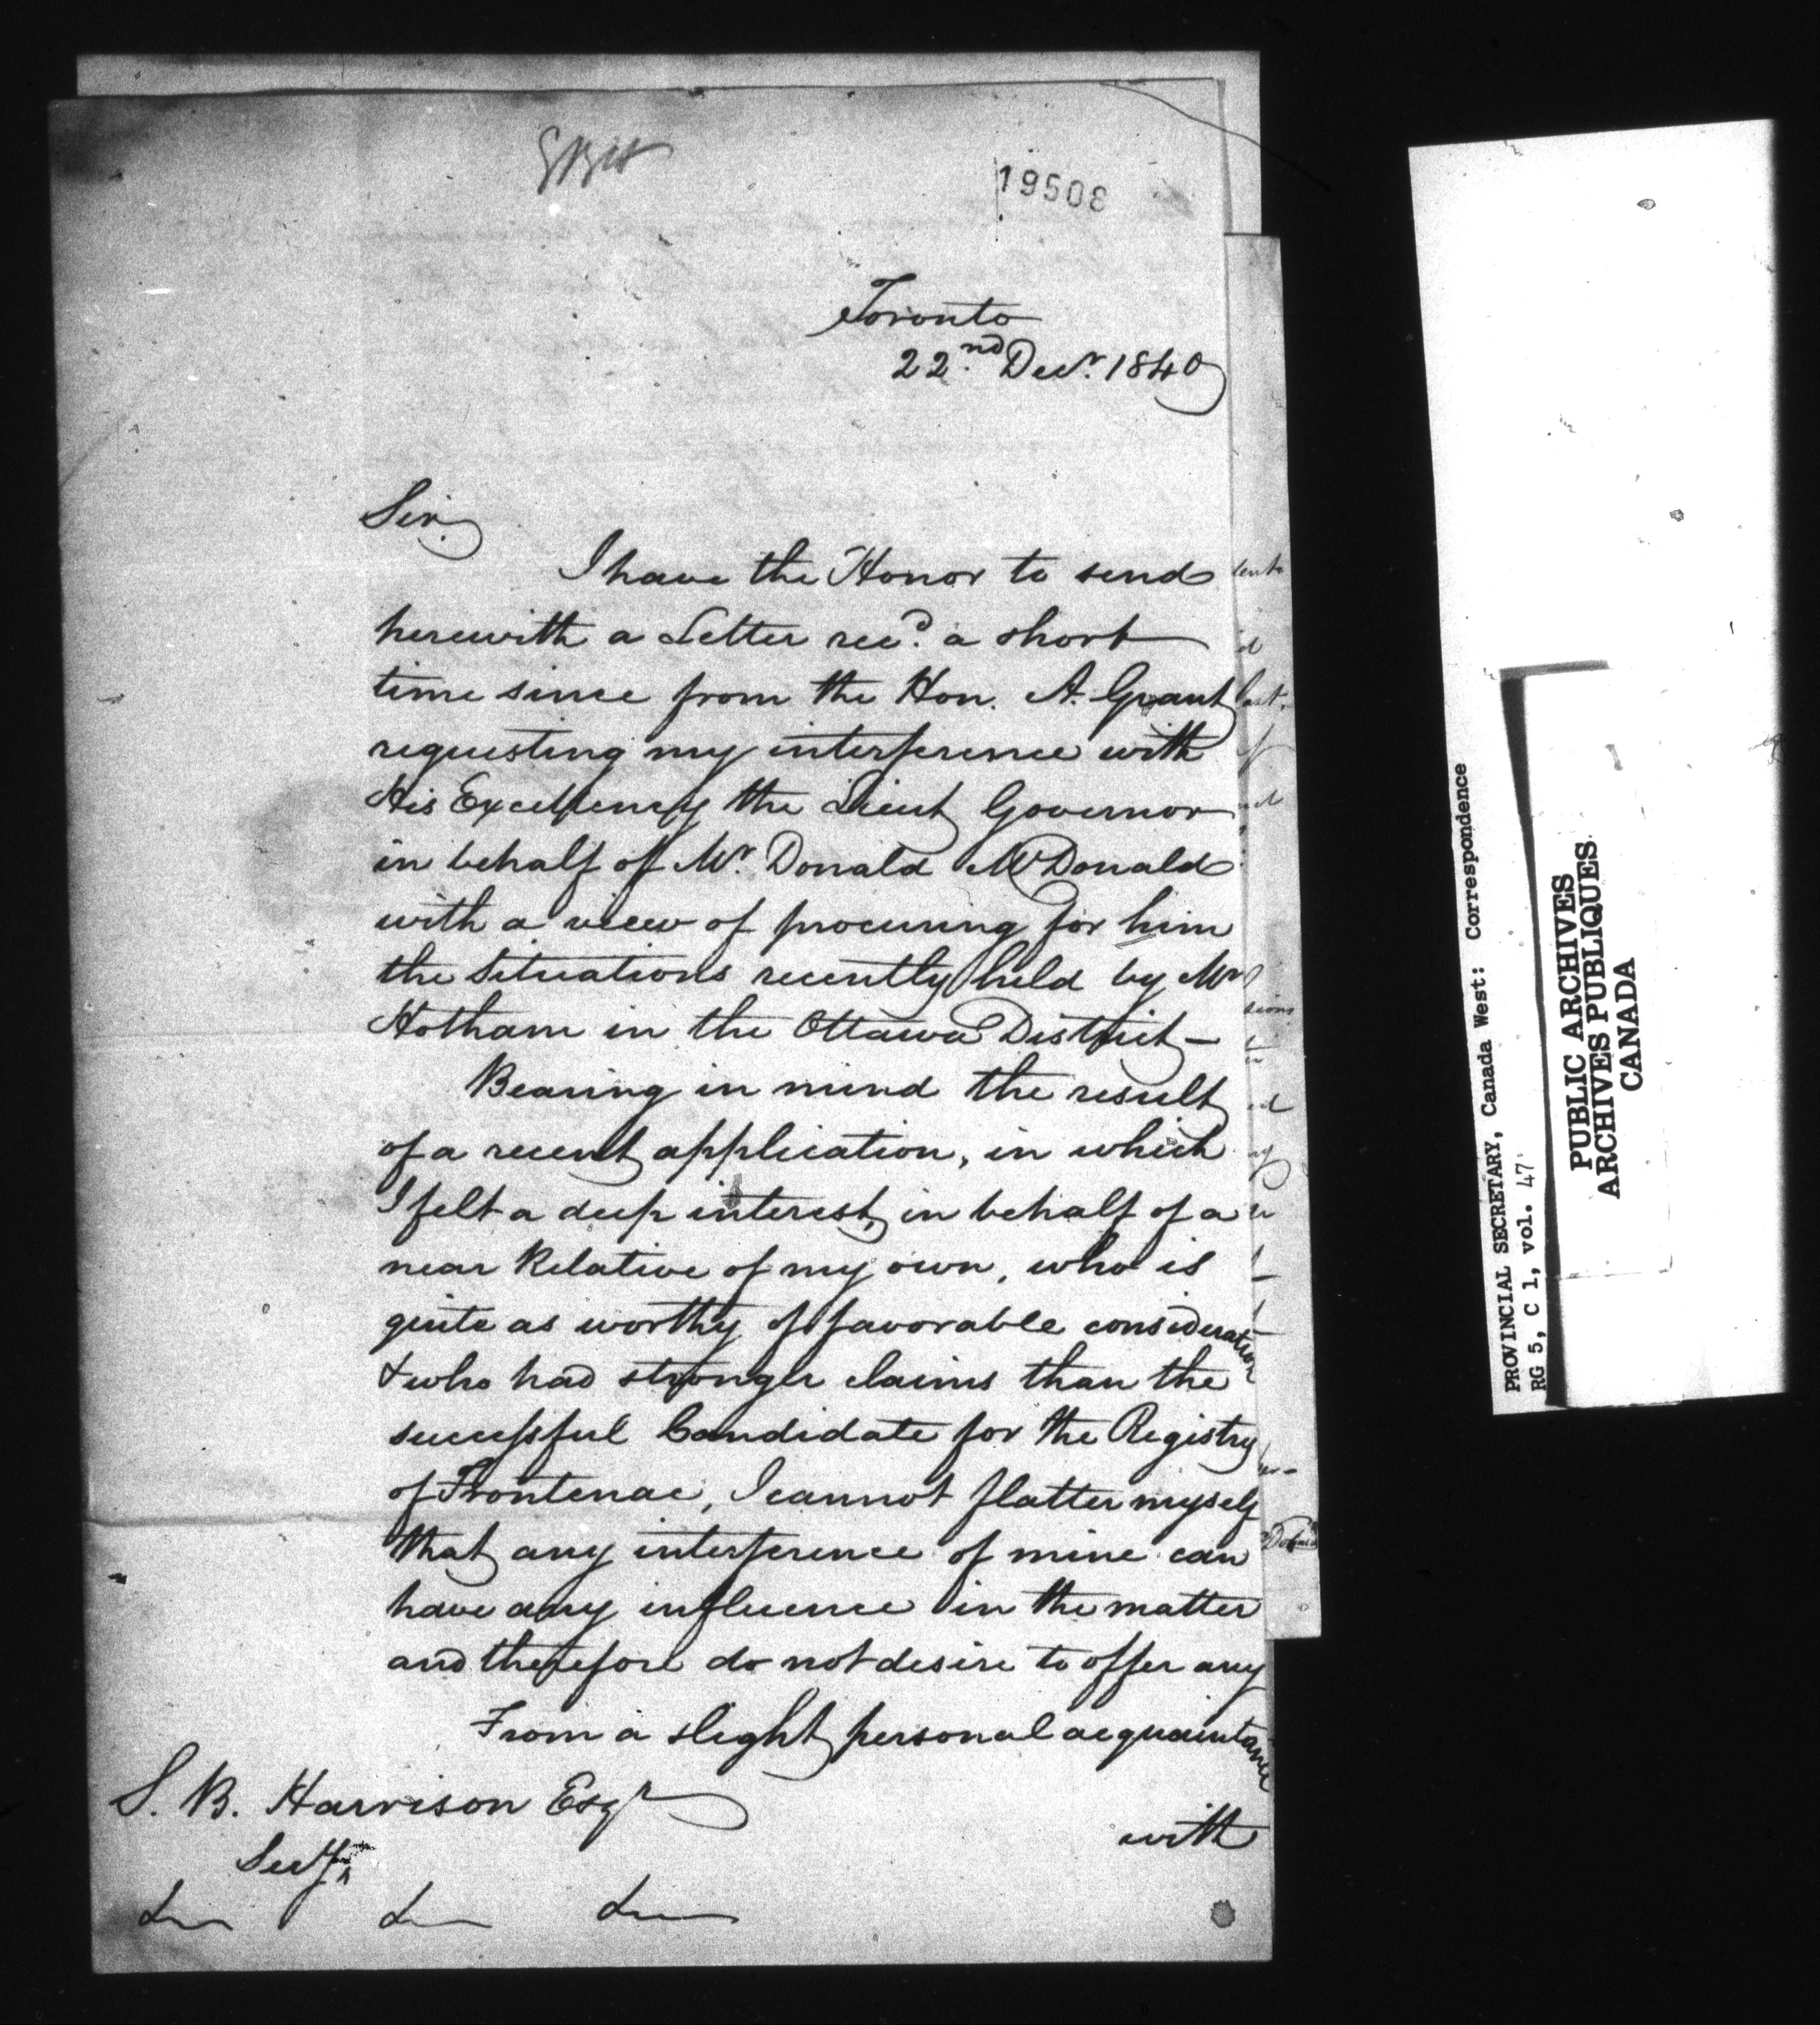 19508
Toronto
22nd Decr. 1840
Sir,
I have the Honor to send
herewith a Letter recd. a short
time since from the Hon. A. Grant
requesting my interference with
His Excellency the Lieut Governor
in behalf of Mr. Donald McDonald
with a view of procuring for him
the Situations recently held by Mr
Hotham in the Ottawa District —
Bearing in mind the result
of a recent application, in which
I felt a deep interest, in behalf of a
near Relative of my own, who is
quite as worthy of favorable consideration
& who had stronger claims than the
successful Candidate for the Registry
of Frontenac, I cannot flatter myself
that any interference of mine can
have any influence in the matter
and therefore do not desire to offer any
From a slight personal acquaintance
with
S. B. Harrison Esqr
Secy
&c &c &c
PROVINCIAL SECRETARY, Canada West: Correspondence
RG 5, C 1, vol. 47
PUBLIC ARCHIVES
ARCHIVES PUBLIQUES
CANADA